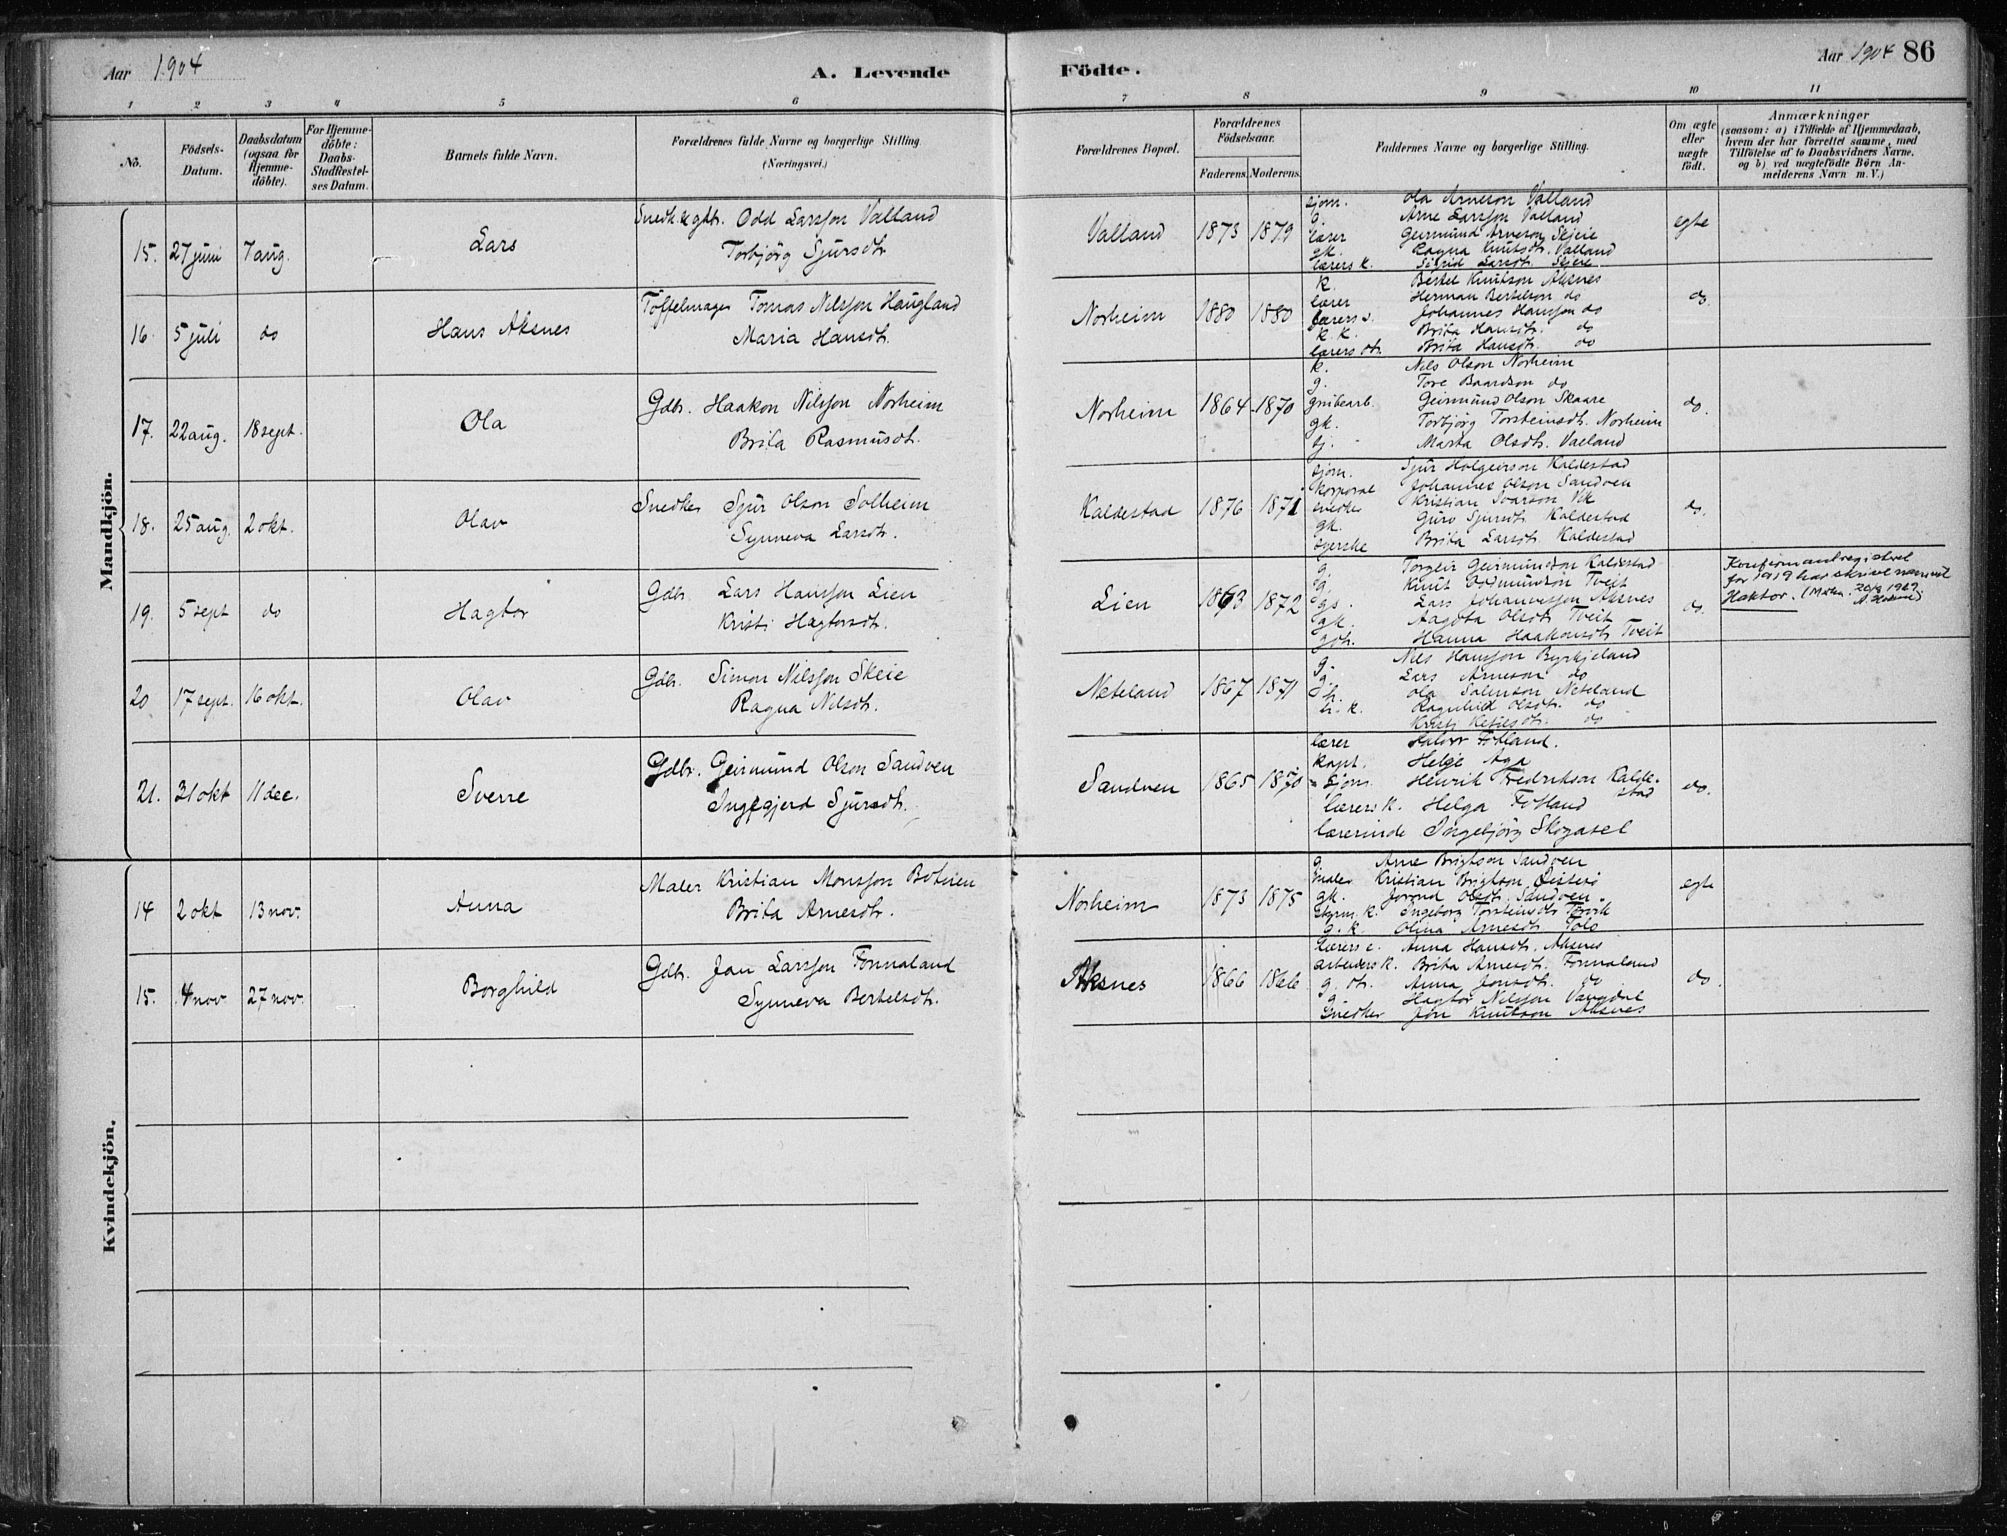 Aar 1904
A. Levende Födte.
Aar 1904 86
1 2 3 4 5 6 7 8 9 10 11
No.
Födsels-Datum.
Daabsdatum (ogsaa for Hjemme-döbte).
For Hjemme-döbte: Daabs-Stadfæstel-ses Datum.
Barnets fulde Navn.
Forældrenes fulde Navne og borgerlige Stilling. (Næringsvei.)
Forældrenes Bopæl.
Forældrenes Födselsaar.
Faderens. Moderens.
Faddernes Navne og borgerlige Stilling.
Om ægte eller uægte födt.
Anmærkninger (saasom: a) i Tilfælde af Hjemmedaab, hvem der har forrettet samme, med Tilföielse af to Daabsvidners Navne, og b) ved uægtefödte Börn An-melderens Navn m. V.)
Mandkjön.
15. 27 juni 7 aug. Lars
Snedk. & gdbr. Odd Larsson Valland
Torbjörg Sjursdtr
Valland 1873 1879
sjøm. Ola Arneson Valland
g. Arne Larsson Valland
lærer Geirmund Arneson Skjeie
gk. Ragna Knutsdtr. Valland
lærers k. Sigrid Larsdt. Skjeie
egte
16. 5 juli do Hans Aksnes
Töffelmager Tomas Nilsson Haugland
Maria Hansdtr.
Norheim 1880 1880
k. Bertel Knutson Aksnes
lærer Herman Bertelson do
lærers s. Johannes Hansson do
k. k. Brita Hansdtr. do
lærers dtr. Brita Hansdtr. do
do.
17. 22 aug. 18 sept. Ola
Gdbr. Haakon Nilsson Norheim
Brita Rasmusdtr.
Norheim 1864 1870
k. Nils Olson Norheim
g. Tore Baardson do
grubearb. Geirmund Olson Skaare
gk. Torbjörg Torsteinsdtr. Norheim
tj. Marta Olsdtr. Valland
do.
18. 25 aug. 2 okt. Olav
Snedker Sjur Olson Solheim
Synneva Larsdtr.
Kaldestad 1876 1871
sjøm. Sjur Holgeirson Kaldestad
korporal Johannes Olson Sandven
snedker Kristian Ivarson Vik
gk. Guro Sjursdt. Kaldestad
syerske Brita Larsdt. Kaldestad
do.
19. 5 sept do Hagtor
Gdbr. Lars Hansson Lien
Kristi Hagtorsdtr.
Lien 1863 1872
g. Torgeir Geirmundson Kaldestad
g. Knut Oddmundson Tveit
gs. Lars Johannesson Aksnes
gk. Aagota Olsdt Tveit
gdtr. Hanna Haakonsdt Tveit
do.
Konfirmantregistret
for 1919 har skrive namnet
Haktor.
20 17 sept. 16 okt. Olav
Gdbr. Simon Nilsson Skeie
Ragna Nilsdtr.
Neteland 1867 1871
g. Nils Hansson Byrkjeland
g. Lars Arneson do
h. Ola Salmson Neteland
h. k. Ragnhild Olsdt. do
Kristi Ketilsdtr. do
21. 31 okt 11 dec. Sverre
Gdbr. Geirmund Olson Sandven
Ingegjerd Sjursdtr.
Sandven 1865 1870
lærer Halvor Fotland.
kapt. Helge Aga
sjøm. Henrik Fredrikson Kalde-
stad
lærers k. Helga Fotland
lærerinde Ingebjörg Skogasel
do.
Kvindekjön.
14 2 okt 13 nov. Anna
Maler Kristian Monsson Botnen
Brita Arnesdtr.
Norheim 1873 1875
g. Arne Brigtson Sandven
maler Kristian Brigtson
gk. Jorond Olsdtr. Sandven.
Styrm. k. Ingeborg Torsteinsdtr Torvik
g. k. Olina Arnesdt Tolo
egte
15. 4 nov 27 nov. Borghild
Gdbr. Jon Larsson Fonnaland
Synneva Bertelsdtr.
Aksnes 1866 1866
Anna Hansdt. Aksnes
arbeiders k. Brita Arnesdt. Fonnaland
g. dt. Anna Jonsdt. do
g. Hagtor Nilsson Vangdal
Snedker Jon Knutson Aksnes
do.